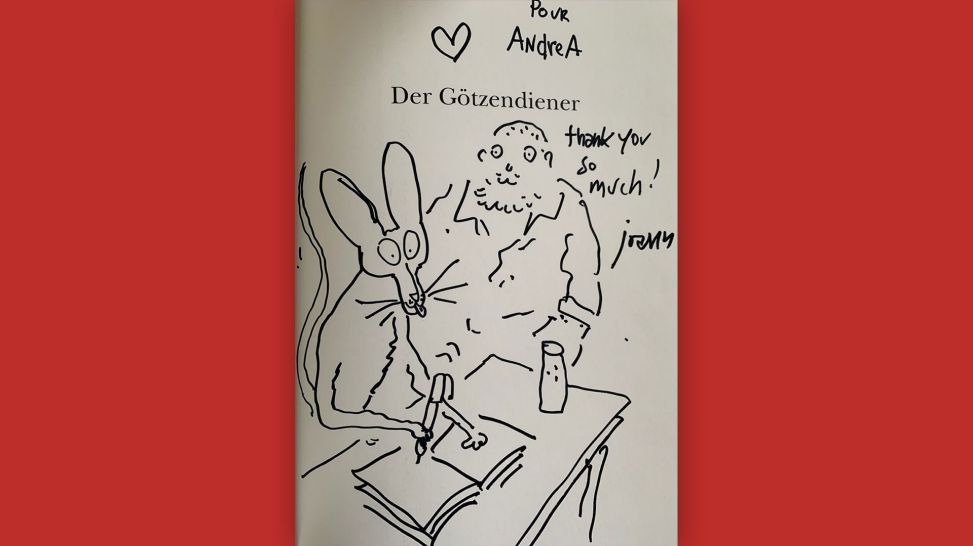 Pour
Andrea
Der Götzendiener
thank you
so
much!
joann